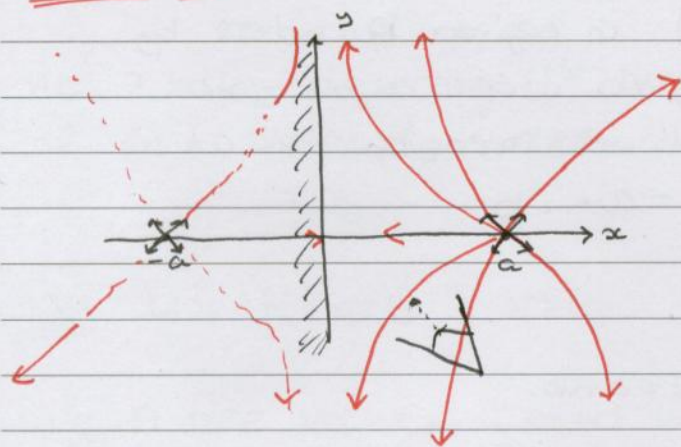 y
x
-a
a